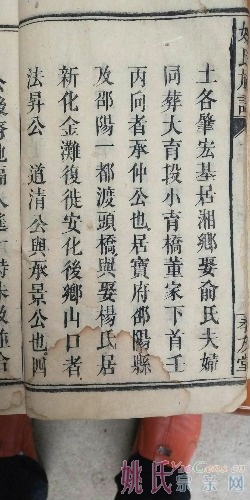 土各肇宏基居湘鄉娶俞氏夫婦
同葬大育段小青橋董家下首壬
丙向者承仲公也居寶府邵陽縣
及邵陽一都渡頭橋與娶楊氏居
新化金灘復徙安化後鄉山口者
法昇公　道清公與承景公也四
姚氏宗亲网
YaoGens.cn